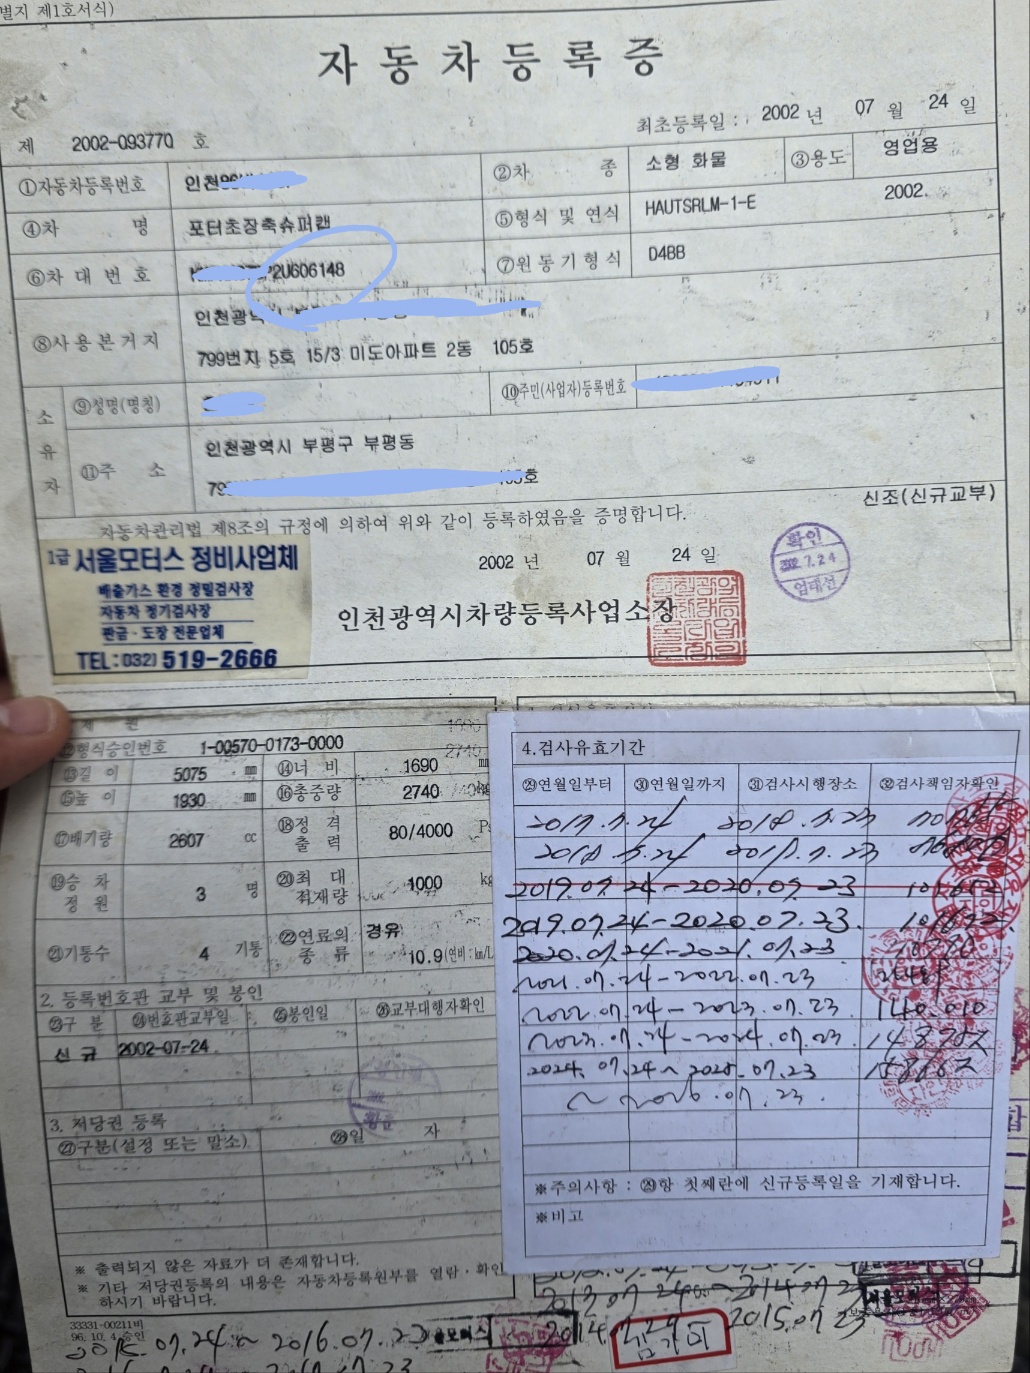 별지 제1호서식)
자동차등록증
제 2002-093770 호
최초등록일 : 2002 년 07 월 24 일
①자동차등록번호 인천
②차 종 소형 화물
③용도 영업용
④차 명 포터초장축슈퍼캡
⑤형식 및 연식 HAUTSRLM-1-E 2002.
⑥차대번호 2U606148
⑦원동기형식 D4BB
⑧사용본거지 인천광역시
799번지 5호 15/3 미도아파트 2동 105호
소유자
⑨성명(명칭)
⑩주민(사업자)등록번호
⑪주 소 인천광역시 부평구 부평동
79
신조(신규교부)
자동차관리법 제8조의 규정에 의하여 위와 같이 등록하였음을 증명합니다.
2002 년 07 월 24 일
인천광역시차량등록사업소장
확인
2002.7.24
1급 서울모터스 정비사업체
배출가스 환경 정밀검사장
자동차 정기검사장
판금·도장 전문업체
TEL:032) 519-2666
제 원
⑫형식승인번호 1-00570-0173-0000
⑬길이 5075 ㎜ ⑭너비 1690 ㎜
⑮높이 1930 ㎜ ⑯총중량 2740 kg
⑰배기량 2607 cc ⑱정격출력 80/4000
⑲승차정원 3 명 ⑳최대적재량 1000 kg
㉑기통수 4 기통 ㉒연료의 종류 경유
10.9(연비:㎞/L
2. 등록번호판 교부 및 봉인
㉓구 분 ㉔번호판교부일 ㉕봉인일 ㉖교부대행자확인
신규 2002-07-24
3. 저당권 등록
㉗구분(설정 또는 말소) ㉘일 자
※ 출력되지 않은 자료가 더 존재합니다.
※ 기타 저당권등록의 내용은 자동차등록원부를 열람·확인
하시기 바랍니다.
33331-00211비
96. 10. 4.승인
4.검사유효기간
㉙연월일부터 ㉚연월일까지 ㉛검사시행장소 ㉜검사책임자확인
2017.7.24 2018.7.23
2018.7.24 2019.7.23
2019.07.24-2020.07.23
2019.07.24-2020.07.23.
2020.07.24-2021.07.23
2021.07.24-2022.07.23
2022.07.24-2023.07.23. 140.010
2023.07.24-2024.07.23.
2024.07.24~2025.07.23
~2026.07.23.
※주의사항 : ㉙항 첫째란에 신규등록일을 기재합니다.
※비고
2013.07.24 2014.07.23
2015.07.23
2015.07.24~2016.07.23